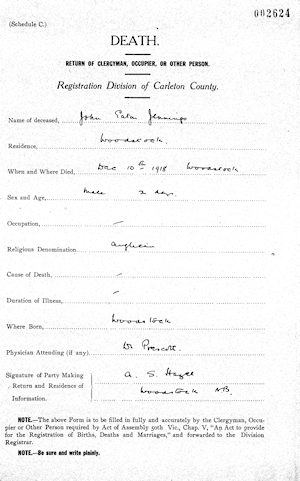 002624
(Schedule C.)
DEATH.
RETURN OF CLERGYMAN, OCCUPIER, OR OTHER PERSON.
Registration Division of Carleton County.
Name of deceased, John Eaton Jennings
Residence, Woodstock.
When and Where Died, Dec 10th 1918 Woodstock
Sex and Age, Male 2 days.
Occupation, —
Religious Denomination Anglican
Cause of Death, —
Duration of Illness, —
Where Born, Woodstock
Physician Attending (if any) Dr Prescott.
Signature of Party Making A. S. Hazel
Return and Residence of Woodstock N.B.
Information.
NOTE.—The above Form is to be filled in fully and accurately by the Clergyman, Occu-
pier or Other Person required by Act of Assembly 50th Vic., Chap. V, "An Act to provide
for the Registration of Births, Deaths and Marriages," and forwarded to the Division
Registrar.
NOTE.—Be sure and write plainly.